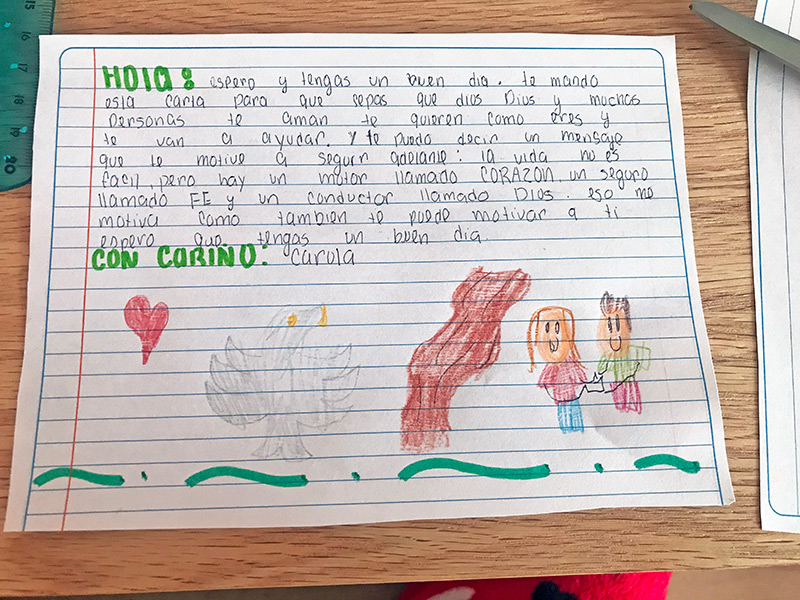 HOLA: espero y tengas un buen dia. te mando
esta carta para que sepas que dios Dios y muchas
personas te aman te quieren como eres y
te van a ayudar. Y te puedo decir un mensaje
que te motive a seguir adelante: la vida no es
facil, pero hay un motor llamado CORAZON, un seguro
llamado FE y un conductor llamado DIOS. eso me
motiva como tambien te puede motivar a ti
espero que tengas un buen dia.
CON CARIÑO: carola
17
18
19
20